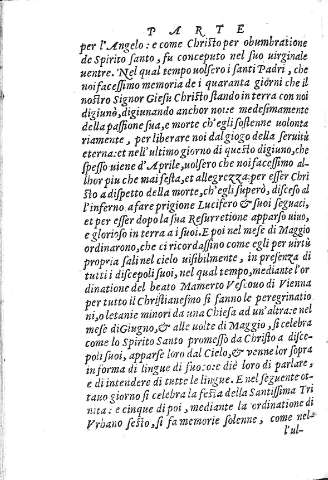 PARTE
per l'Angelo: e come Christo per obumbratione
de Spirito santo, fu conceputo nel suo uirginale
uentre. Nel qual tempo uolsero i santi Padri, che
noi facessimo memoria de i quaranta giorni che il
nostro Signor Giesu Christo stando in terra con noi
digiunò, digiunando anchor noi: e medesimamente
della passione sua, e morte ch'egli sostenne uolonta
riamente, per liberare noi dal giogo della seruitù
eterna: et nell'ultimo giorno di questo digiuno, che
spesso uiene d'Aprile, uolsero che noi facessimo al-
lhor piu che mai festa, et allegrezza: per esser Chri
sto a dispetto della morte, ch'egli superò, disceso al
l'inferno a fare prigione Lucifero & suoi seguaci,
et per esser dopo la sua Resurretione apparso uiuo,
e glorioso in terra a i suoi. E poi nel mese di Maggio
ordinarono, che ci ricordassimo come egli per uirtù
propria salì nel cielo uisibilmente, in presenza di
tutti i discepoli suoi, nel qual tempo, mediante l'or
dinatione del beato Mamerto Vescouo di Vienna
per tutto il Christianesimo si fanno le peregrinatio
ni, o letanie minori da una Chiesa ad un'altra: e nel
mese di Giugno, & alle uolte di Maggio, si celebra
come lo Spirito Santo promesso da Christo a disce-
poli suoi, apparse loro dal Cielo, & venne lor sopra
in forma di lingue di fuoco: e diè loro di parlare,
e di intendere di tutte le lingue. E nel seguente ot-
tauo giorno si celebra la festa della Santissima Tri
nita: e cinque dì poi, mediante la ordinatione di
Vrbano sesto, si fa memorie solenne, come nel-
l'ul-